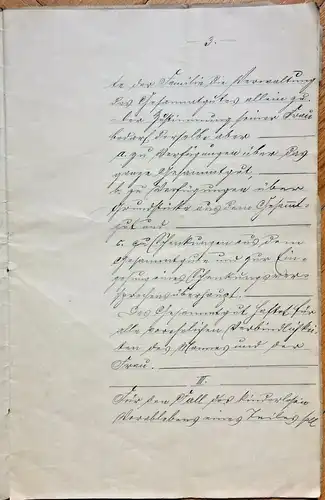 — 3. —
te der Familie die Verwaltung
des Gesammtgutes allein zu.
der Zustimmung seiner Frau
bedarf derselbe aber
a. zu Verfügungen über das
ganze Gesammtgut,
b. zu Verfügungen über
Grundstücke aus dem Gesammt-
gut und
c. zu Schenkungen aus dem
Gesammtgute und zur Ein-
gehung eines Schenkungsver-
sprechens überhaupt.
Das Gesammtgut haftet für
alle vorehelichen Verbindlichkei-
ten des Mannes und der
Frau.
III.
Für den Fall des kinderlosen
Vorablebens eines Teiles soll